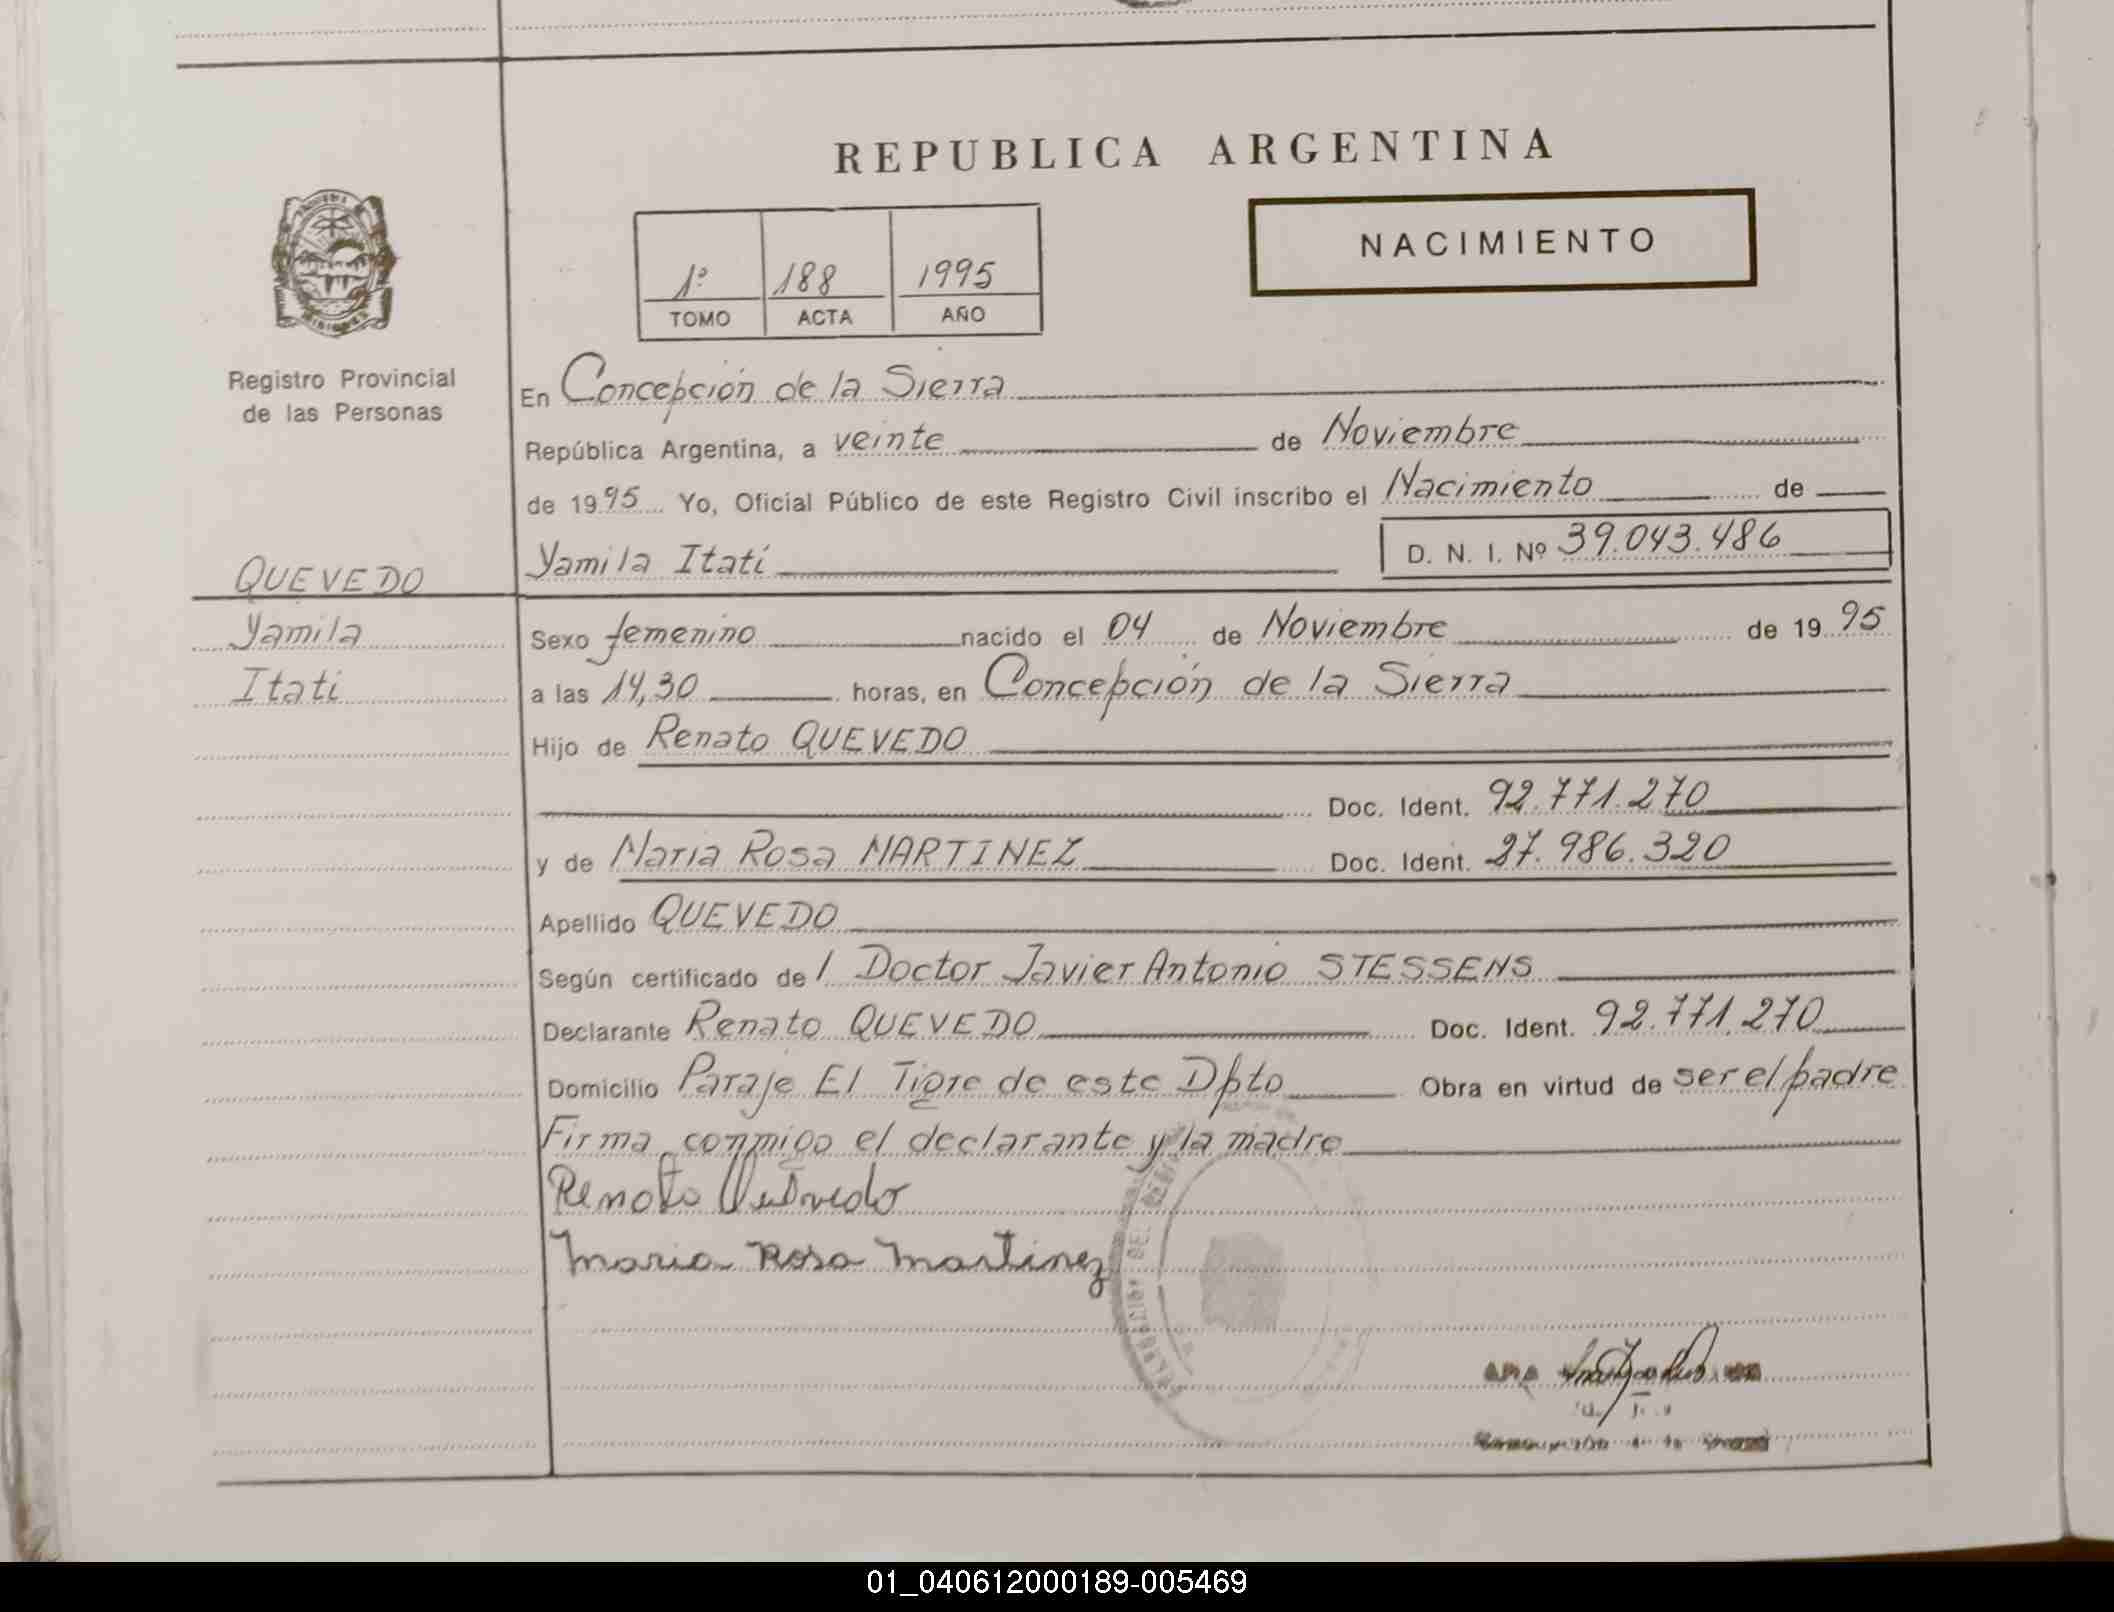 REPUBLICA ARGENTINA
NACIMIENTO
1º 188 1995
TOMO ACTA AÑO
Registro Provincial
de las Personas
En Concepción de la Sierra
República Argentina, a veinte de Noviembre
de 1995 Yo, Oficial Público de este Registro Civil inscribo el Nacimiento de
Yamila Itatí D. N. I. Nº 39.043.486
QUEVEDO
Yamila
Itatí
Sexo femenino nacido el 04 de Noviembre de 1995
a las 14,30 horas, en Concepción de la Sierra
Hijo de Renato QUEVEDO
Doc. Ident. 92.771.270
y de Maria Rosa MARTINEZ Doc. Ident. 27.986.320
Apellido QUEVEDO
Según certificado del Doctor Javier Antonio STESSENS
Declarante Renato QUEVEDO Doc. Ident. 92.771.270
Domicilio Paraje El Tigre de este Dpto Obra en virtud de ser el padre
Firma conmigo el declarante y la madre
Renato Quevedo
Maria Rosa Martinez
01_040612000189-005469